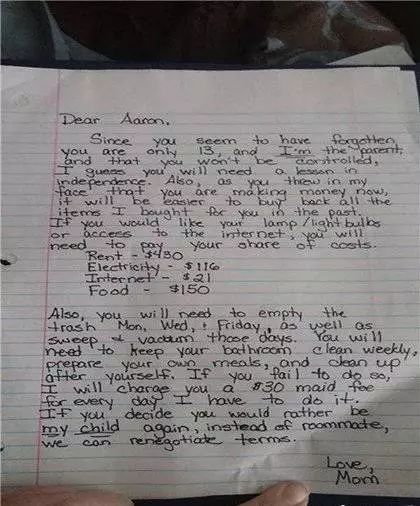 Dear Aaron,
Since you seem to have forgotten
you are only 13, and I'm the parent,
and that you won't be controlled,
I guess you will need a lesson in
independence. Also, as you threw in my
face that you are making money now,
it will be easier to buy back all the
items I bought for you in the past.
If you would like your lamp/light bulbs
or access to the internet, you will
need to pay your share of costs.
Rent - $430
Electricity - $116
Internet - $21
Food - $150
Also, you will need to empty the
trash Mon, Wed, + Friday, as well as
sweep + vacuum those days. You will
need to keep your bathroom clean weekly,
prepare your own meals, and clean up
after yourself. If you fail to do so,
I will charge you a $30 maid fee
for every day I have to do it.
If you decide you would rather be
my child again, instead of roommate,
we can renegotiate terms.
Love,
Mom